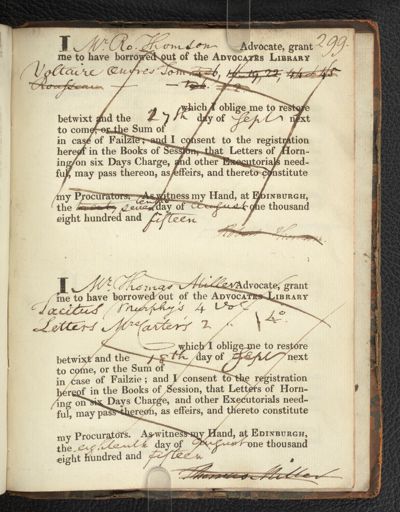 299.
I Mr. Ro. Thomson Advocate, grant
me to have borrowed out of the ADVOCATES LIBRARY
Voltaire Œuvres Tom. 19, 22, 44 & 45
Rousseau
which I oblige me to restore
betwixt and the 27th day of Sept next
to come, or the Sum of
in case of Failzie; and I consent to the registration
hereof in the Books of Session, that Letters of Horn-
ing on six Days Charge, and other Executorials need-
ful, may pass thereon, as effeirs, and thereto constitute
my Procurators. As witness my Hand, at EDINBURGH,
the day of August one thousand
eight hundred and fifteen
Thomson
I Mr. Thomas Miller Advocate, grant
me to have borrowed out of the ADVOCATES LIBRARY
Tacitus Murphy's 4 vol 4o.
Letters Mrs Carter's 2
which I oblige me to restore
betwixt and the 18th day of Sept next
to come, or the Sum of
in case of Failzie; and I consent to the registration
hereof in the Books of Session, that Letters of Horn-
ing on six Days Charge, and other Executorials need-
ful, may pass thereon, as effeirs, and thereto constitute
my Procurators. As witness my Hand, at EDINBURGH,
the eighteenth day of August one thousand
eight hundred and fifteen
Thomas Miller